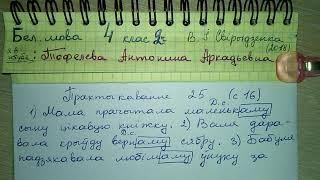 Бел. мова 4 клас 2ч. В.І. Свірыдзенка (2018)
Тюфелева Антонина Аркадьевна
Практыкаванне 25 (с 16)
Д.с.
1) Мама прачытала маленькаму
сыну цікавую кніжку. 2) Валя дара-
Д.с.
вала сястру вернаму сябру. 3) Бабуля
падзякавала любімаму унуку за